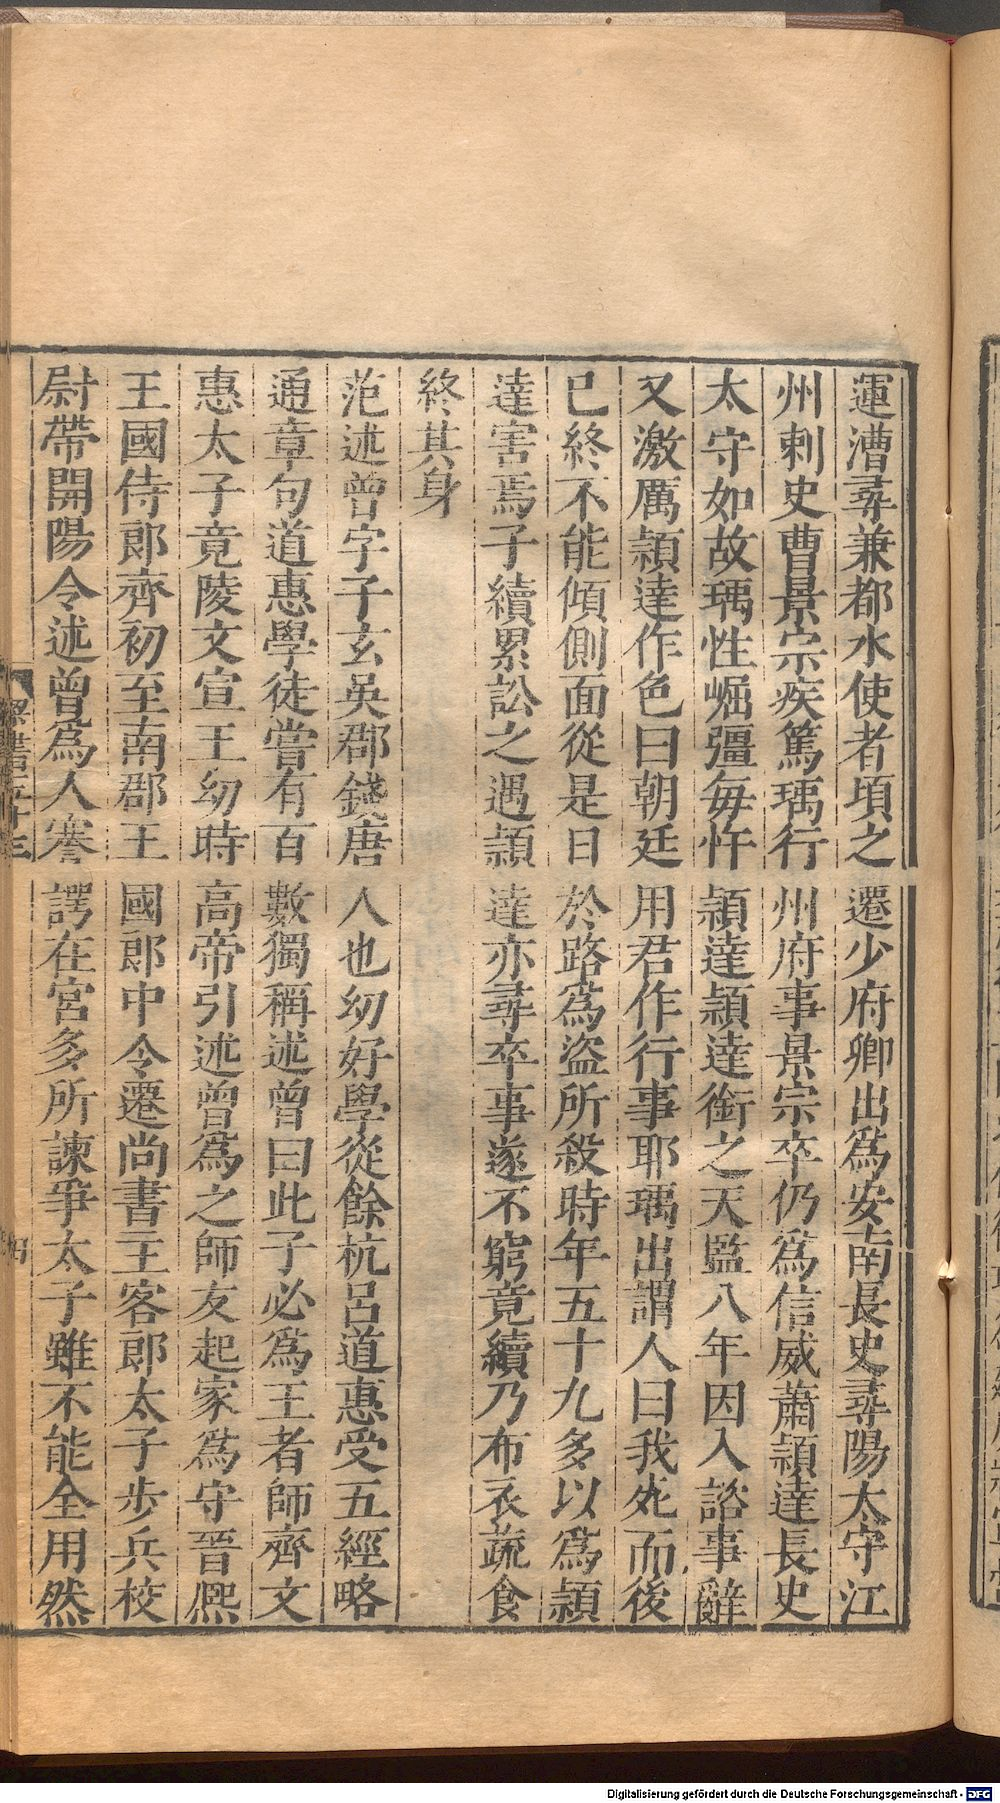 運漕尋兼都水使者頃之遷少府卿出爲安南長史尋陽太守江
州刺史曹景宗疾篤瑀行州府事景宗卒仍爲信威蕭頴達長史
太守如故瑀性崛彊每忤頴達頴達銜之天監八年因入諮事辭
又激厲頴達作色曰朝廷用君作行事耶瑀出謂人曰我死而後
已終不能傾側面從是日於路爲盜所殺時年五十九多以爲頴
達害焉子續累訟之遇頴達亦尋卒事遂不窮竟續乃布衣蔬食
終其身
范述曾字子玄吳郡錢唐人也幼好學從餘杭呂道惠受五經略
通章句道惠學徒嘗有百數獨稱述曾曰此子必爲王者師齊文
惠太子竟陵文宣王幼時高帝引述曾爲之師友起家爲守晉熙
王國侍郎齊初至南郡王國郎中令遷尚書主客郎太子步兵校
尉帶開陽令述曾爲人謇諤在宮多所諫爭太子雖不能全用然
梁書五十三
Digitalisierung gefördert durch die Deutsche Forschungsgemeinschaft - DFG